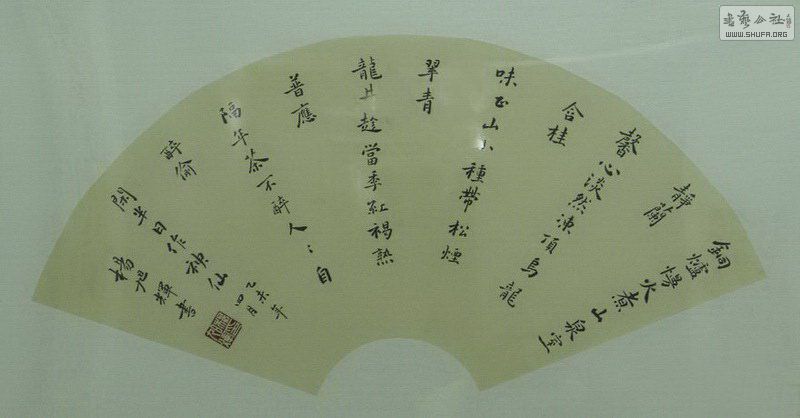 銅爐慢火煮山泉室
靜蘭
馨心淡然凍頂烏龍
含桂
味正山小種帶松煙
翠青
龍井趁當季紅褐熟
普應
隔年茶不醉人〻自
醉偷
閑半日作神仙
乙未年
四月
楊旭輝書
書藝公社
WWW.SHUFA.ORG